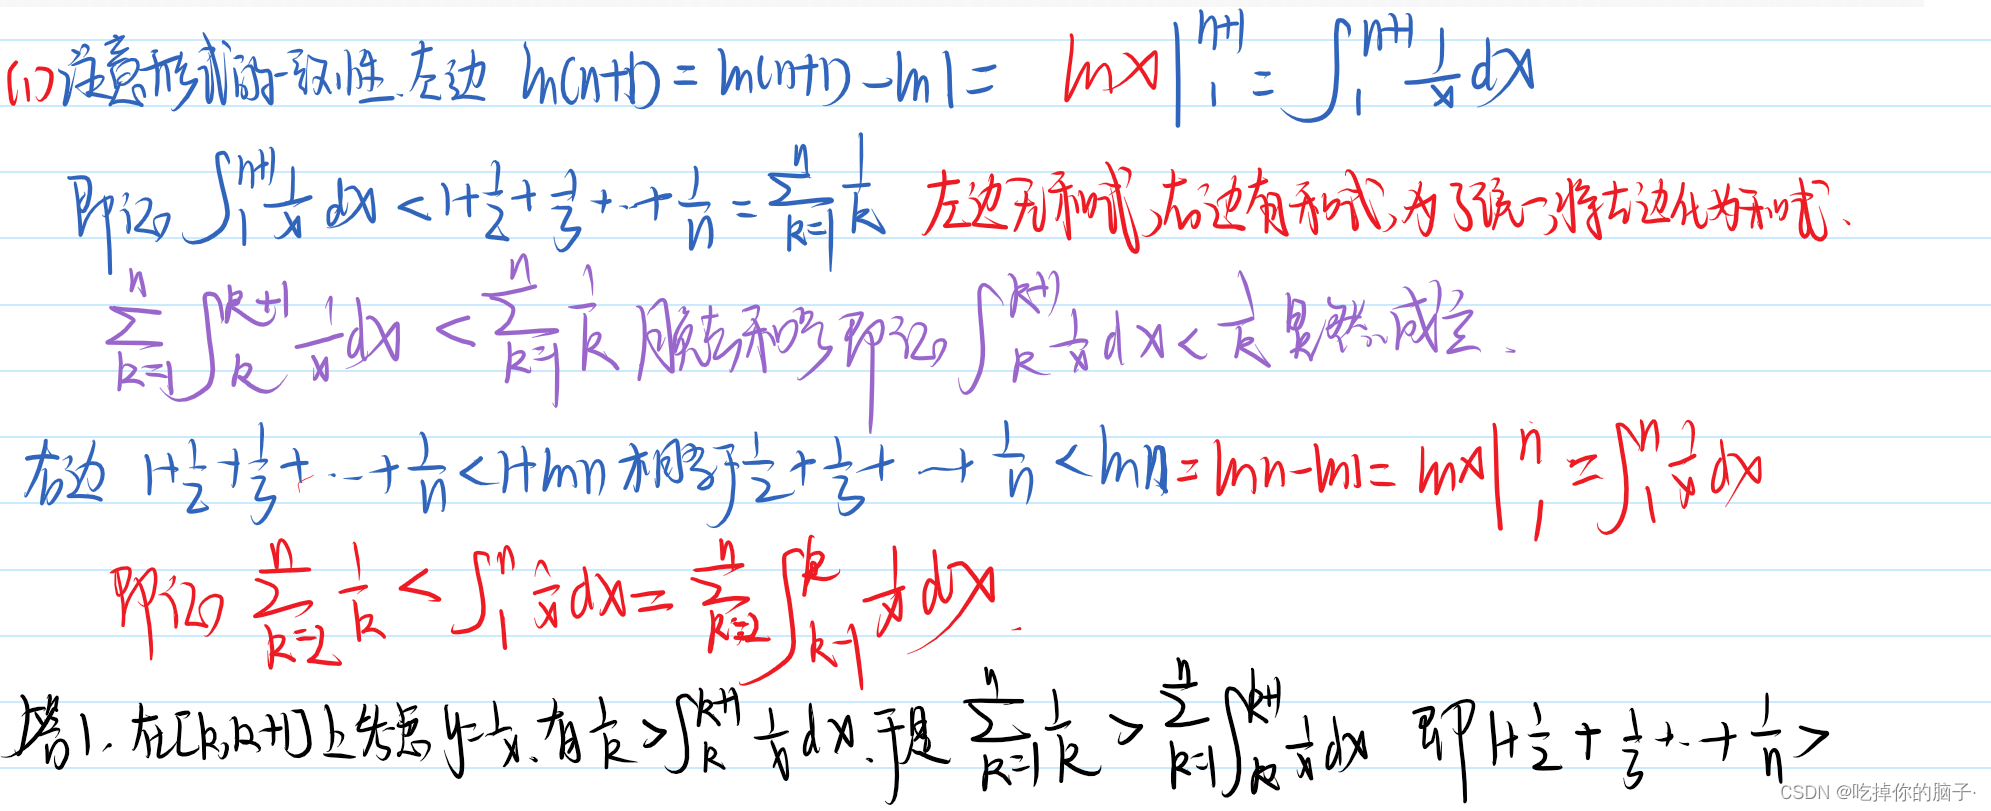 (1) 注意形式的一致性. 左边 ln(n+1) = ln(n+1) - ln1 = lnx|₁ⁿ⁺¹ = ∫₁ⁿ⁺¹ 1/x dx
即证 ∫₁ⁿ⁺¹ 1/x dx < 1+1/2+1/3+…+1/n = ∑ₖ₌₁ⁿ 1/k 左边无和式,右边有和式,为了统一,将左边化为和式.
∑ₖ₌₁ⁿ ∫ₖᵏ⁺¹ 1/x dx < ∑ₖ₌₁ⁿ 1/k 脱去和号即证 ∫ₖᵏ⁺¹ 1/x dx < 1/k 显然成立.
右边 1+1/2+1/3+…+1/n < 1+lnn 相当于 1/2+1/3+…+1/n < lnn = lnn-ln1 = lnx|₁ⁿ = ∫₁ⁿ 1/x dx
即证 ∑ₖ₌₂ⁿ 1/k < ∫₁ⁿ 1/x dx = ∑ₖ₌₂ⁿ ∫ₖ₋₁ᵏ 1/x dx.
1. 在[k,k+1]上考虑 y=1/x, 有 1/k > ∫ₖᵏ⁺¹ 1/x dx. 于是 ∑ₖ₌₁ⁿ 1/k > ∑ₖ₌₁ⁿ ∫ₖᵏ⁺¹ 1/x dx 即 1+1/2+1/3+…+1/n >
CSDN @吃掉你的脑子·